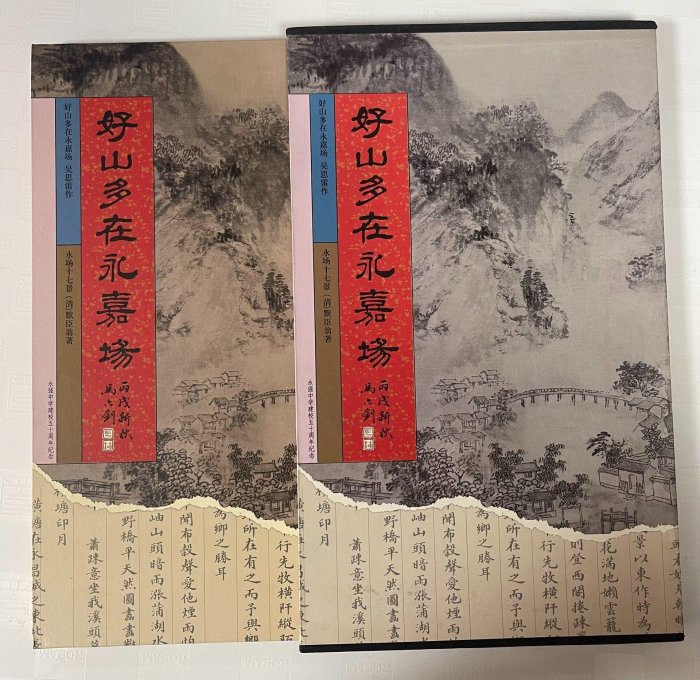 好山多在永嘉场 吴思雷作
永场十七景 (清)默臣翁著
好山多在永嘉場
丙戌新秋
馬亦釗
永强中学建校五十周年纪念
行先牧橫阡縱陌
所在有之而予與鄉
為鄉之勝耳
聞布穀聲愛他煙雨怕
岫山頭暗雨漲蒲湖水
野橋平天然圖畫畫
蕭疎意坐我溪頭
塘印月
黃塘在永昌之東北
好山多在永嘉场 吴思雷作
永场十七景 (清)默臣翁著
好山多在永嘉場
丙戌新秋
馬亦釗
永强中学建校五十周年纪念
景以東作時為
花滿地嬾雲龍
則登西閣捲疎
行先牧橫阡縱
所在有之而予與
為鄉之勝耳
聞布穀聲愛他煙雨
岫山頭暗雨漲蒲湖水
野橋平天然圖畫畫
蕭疎意坐我溪頭
塘印月
黃塘在永昌之東